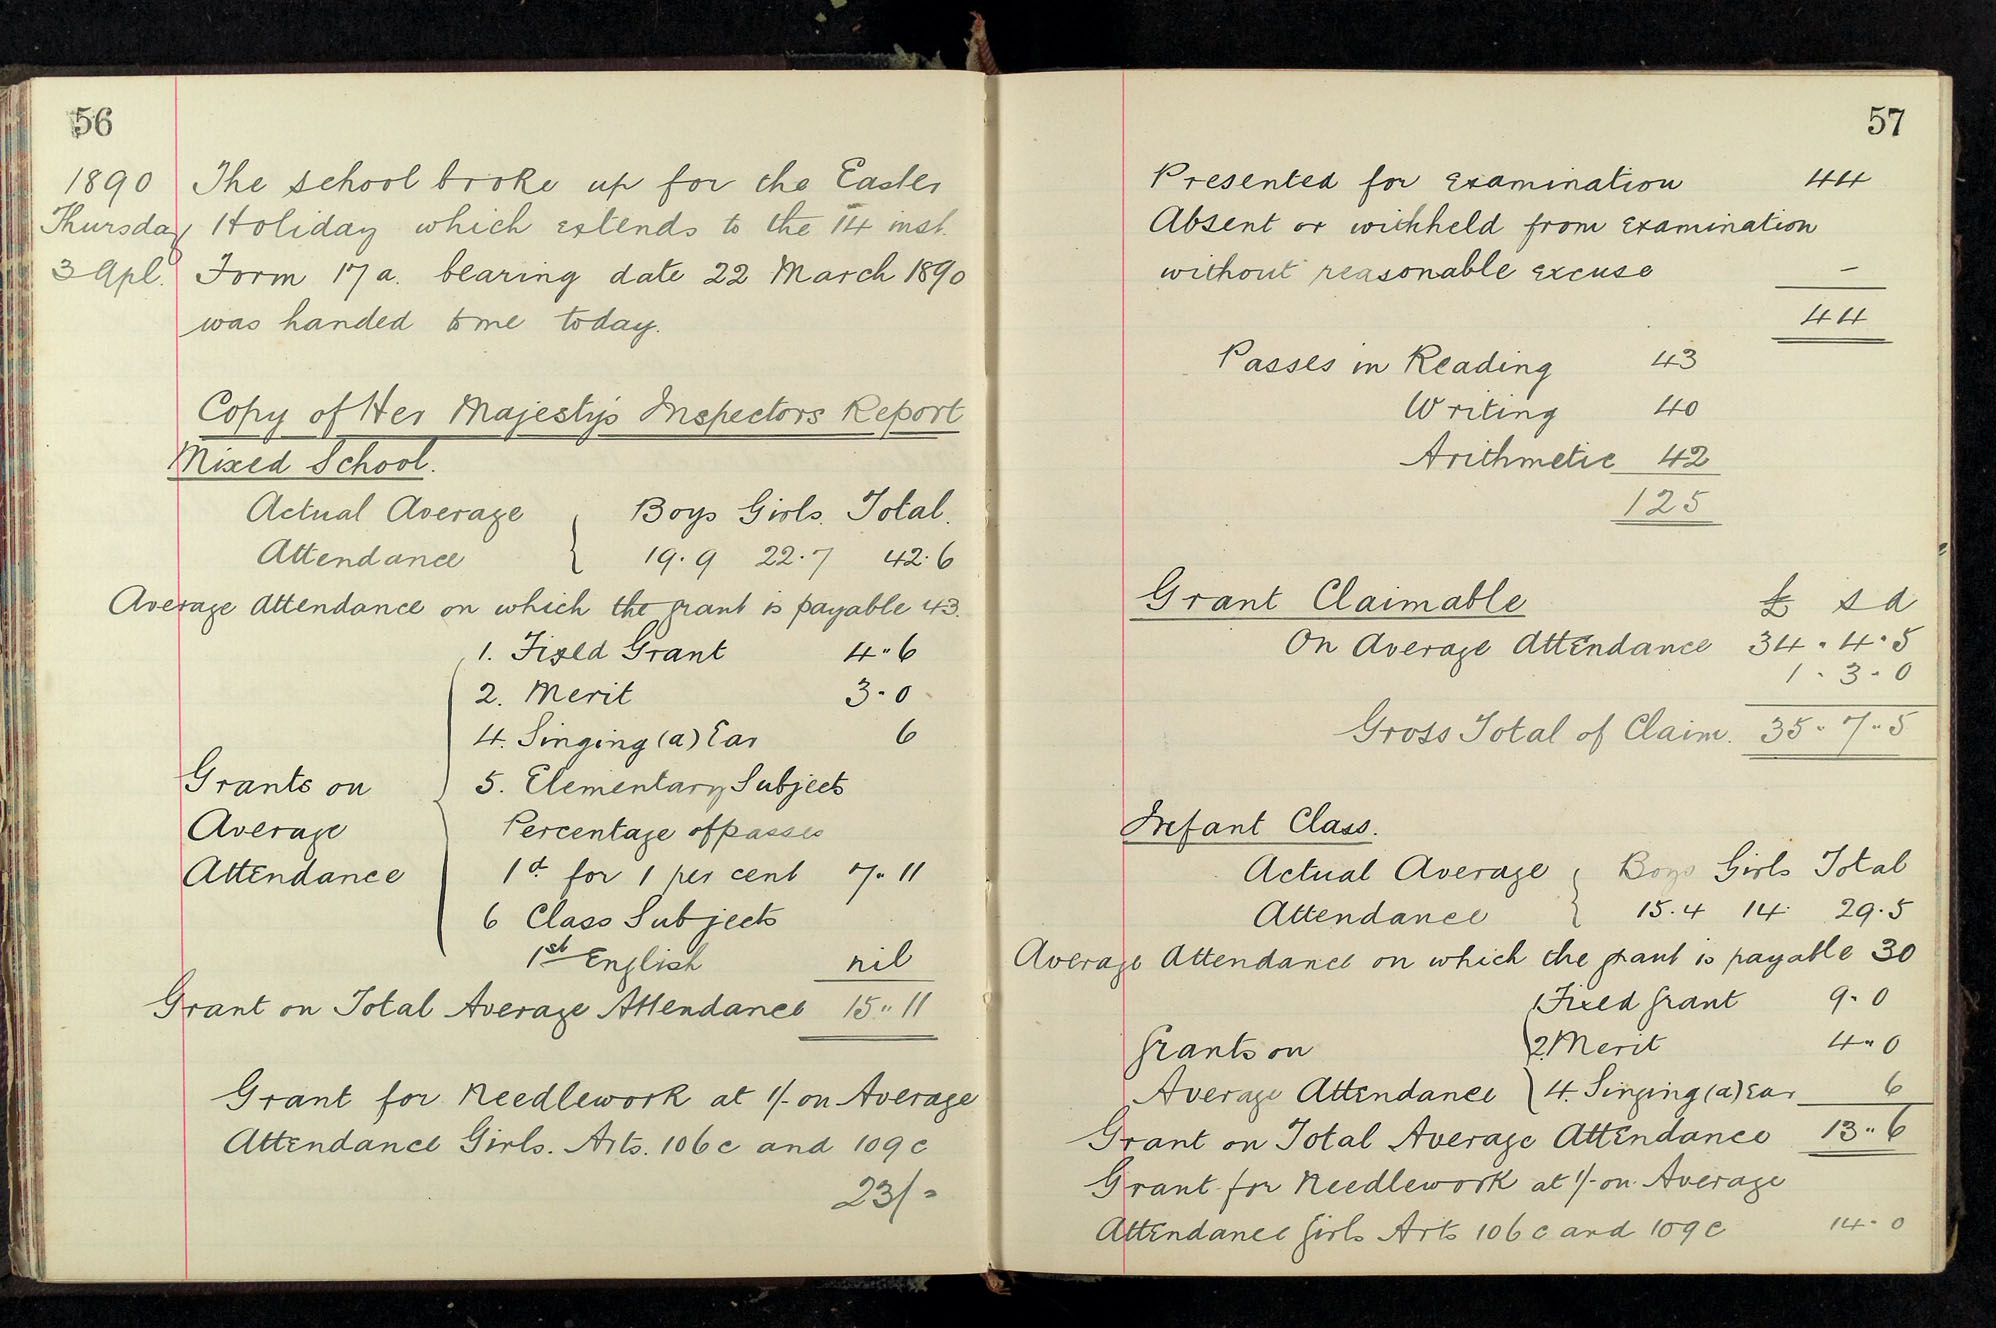 56
1890 The school broke up for the Easter
Thursday Holiday which extends to the 14 inst.
3 Apl. Form 17a. bearing date 22 March 1890
was handed to me today.
Copy of Her Majesty's Inspectors Report
Mixed School.
Actual Average { Boys Girls. Total.
Attendance 19.9 22.7 42.6
Average Attendance on which the grant is payable 43.
1. Fixed Grant 4"6
2. Merit 3-0
4. Singing (a) Ear 6
Grants on 5. Elementary Subjects
Average Percentage of passes
Attendance 1d for 1 per cent 7"11
6 Class Subjects
1st English nil
Grant on Total Average Attendance 15"11
Grant for Needlework at 1/- on Average
Attendance Girls. Arts. 106c and 109c
23/-
57
Presented for Examination 44
Absent or withheld from Examination
without reasonable excuse –
44
Passes in Reading 43
Writing 40
Arithmetic 42
125
Grant Claimable £ s d
On Average Attendance 34.4.5
1.3.0
Gross Total of Claim. 35.7.5
Infant Class.
Actual Average { Boys Girls Total
Attendance 15.4 14. 29.5
Average Attendance on which the grant is payable 30
1 Fixed grant 9-0
Grants on 2. Merit 4"0
Average Attendance 4. Singing (a) Ear 6
Grant on Total Average Attendance 13"6
Grant for Needlework at 1/- on Average
Attendance Girls Arts 106c and 109c 14-0